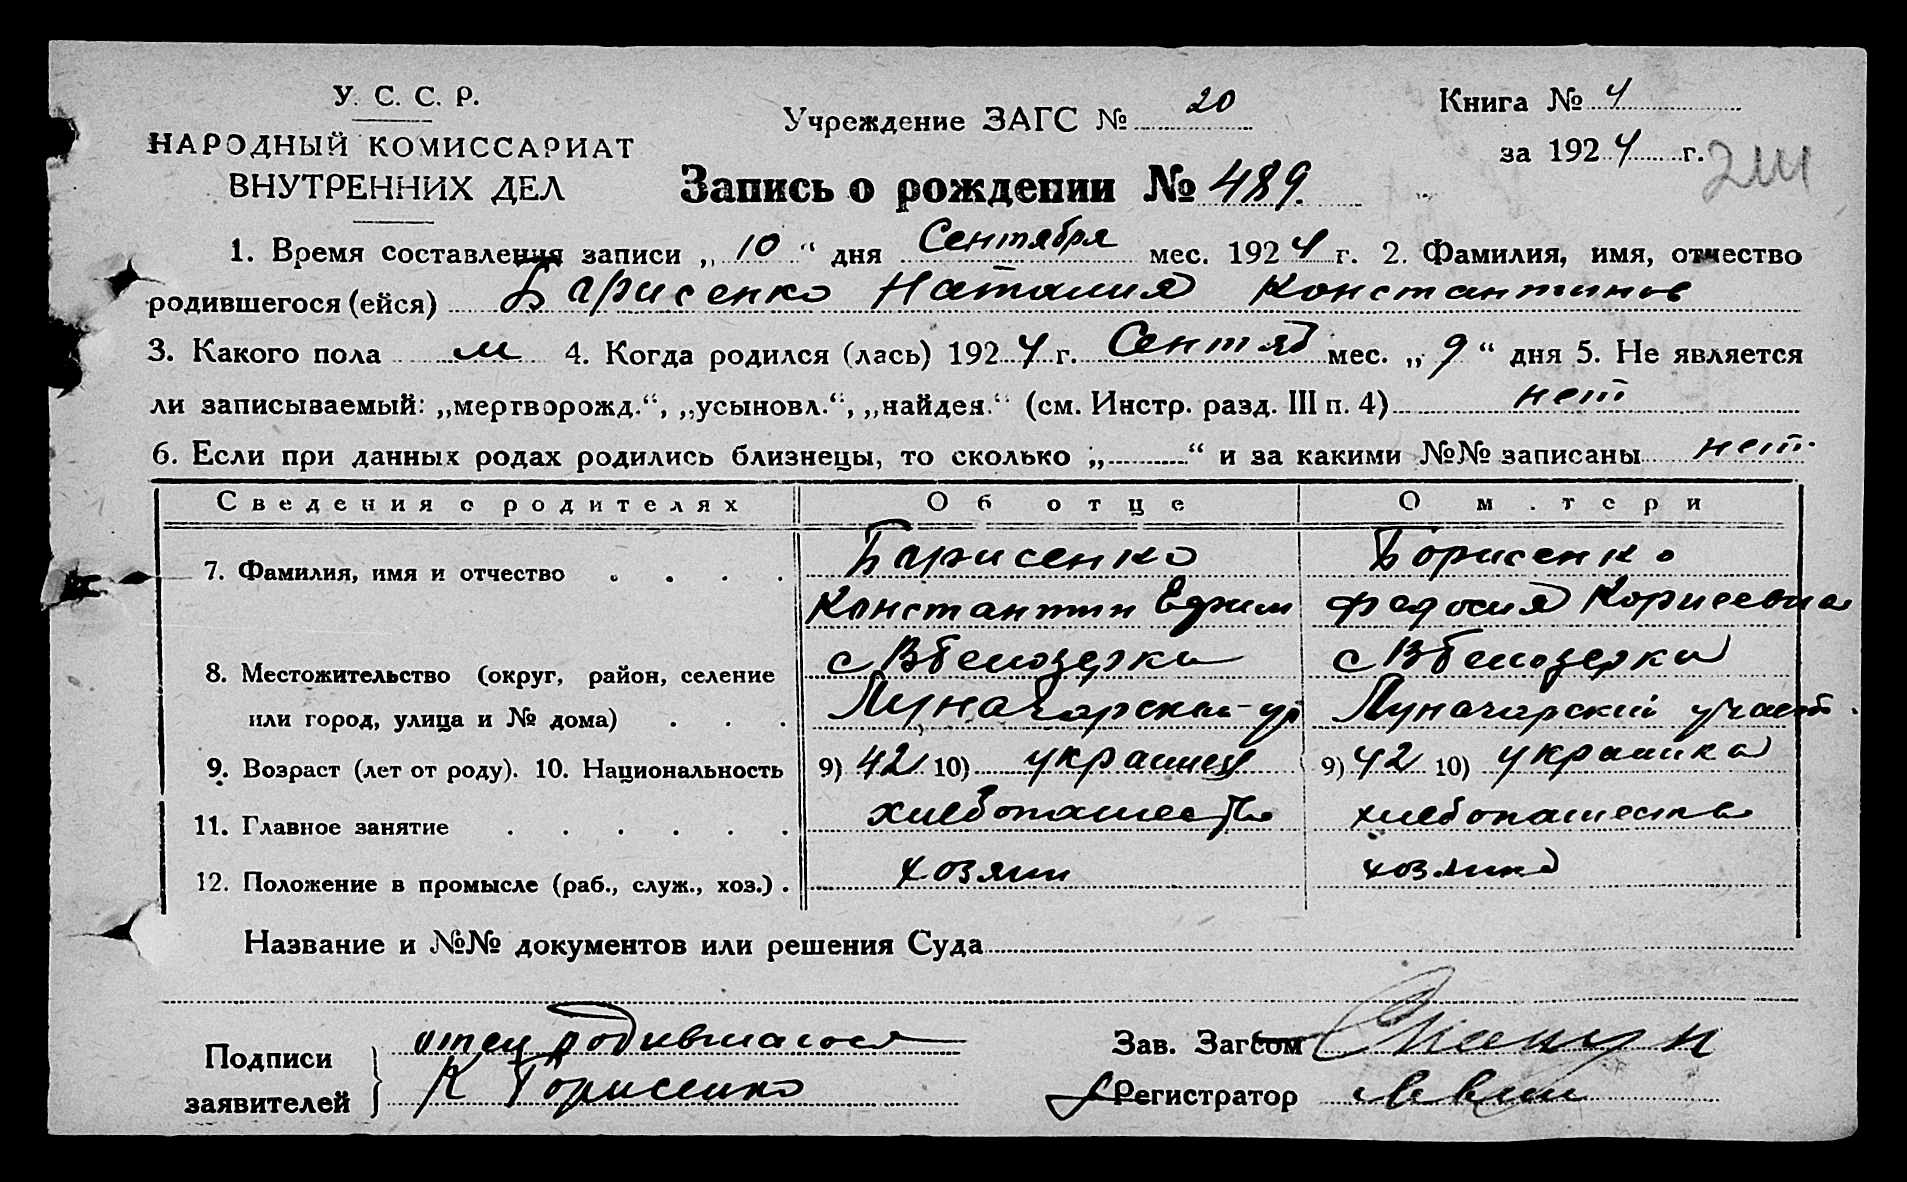 У. С. С. Р.
НАРОДНЫЙ КОМИССАРИАТ
ВНУТРЕННИХ ДЕЛ
Учреждение ЗАГС № 20
Книга № 4
за 1924 г.
Запись о рождении № 489.
1. Время составления записи „10“ дня Сентября мес. 1924 г. 2. Фамилия, имя, отчество
родившегося (ейся) Барисенко Наталия Константинов
3. Какого пола м 4. Когда родился (лась) 1924 г. Сентяб мес. „9“ дня 5. Не является
ли записываемый: „мертворожд.“, „усыновл.“, „найден.“ (см. Инстр. разд. III п. 4) нет
6. Если при данных родах родились близнецы, то сколько „ “ и за какими №№ записаны нет
Сведения о родителях Об отце О м.тери
7. Фамилия, имя и отчество Барисенко Борисенко
Константин Ефим Федосия
8. Местожительство (округ, район, селение с В белозерки с В белозерки
или город, улица и № дома) Луначарский Луначарский участ.
9. Возраст (лет от роду). 10. Национальность 9) 42 10) украинец 9) 42 10) украинка
11. Главное занятие хлебопашество хлебопашество
12. Положение в промысле (раб., служ., хоз.) хозяин хозяика
Название и №№ документов или решения Суда
Подписи заявителей отец родившагося
К Борисенко
Зав. Загсом
Регистратор